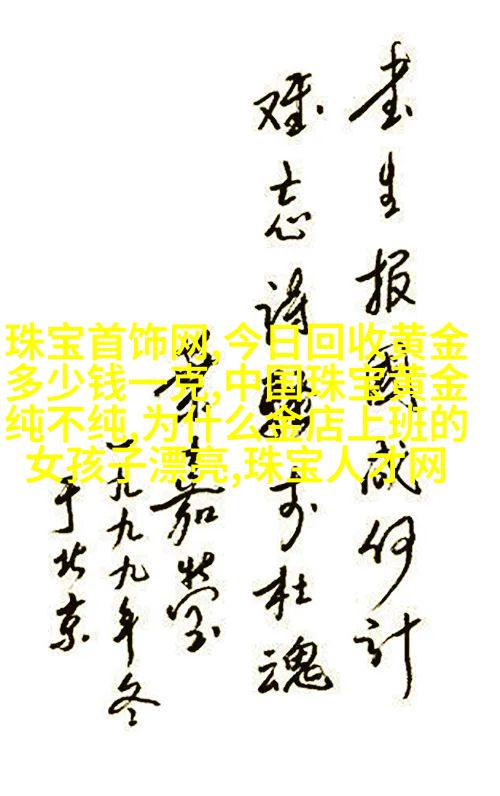 书生报國成何计
难忘诗骚李杜魂
葉嘉莹
一九九九年冬
于北京
珠宝首饰网,今日回收黄金
多少钱一克,中国珠宝黄金
纯不纯,为什么金店上班的
女孩子漂亮,珠宝人才网